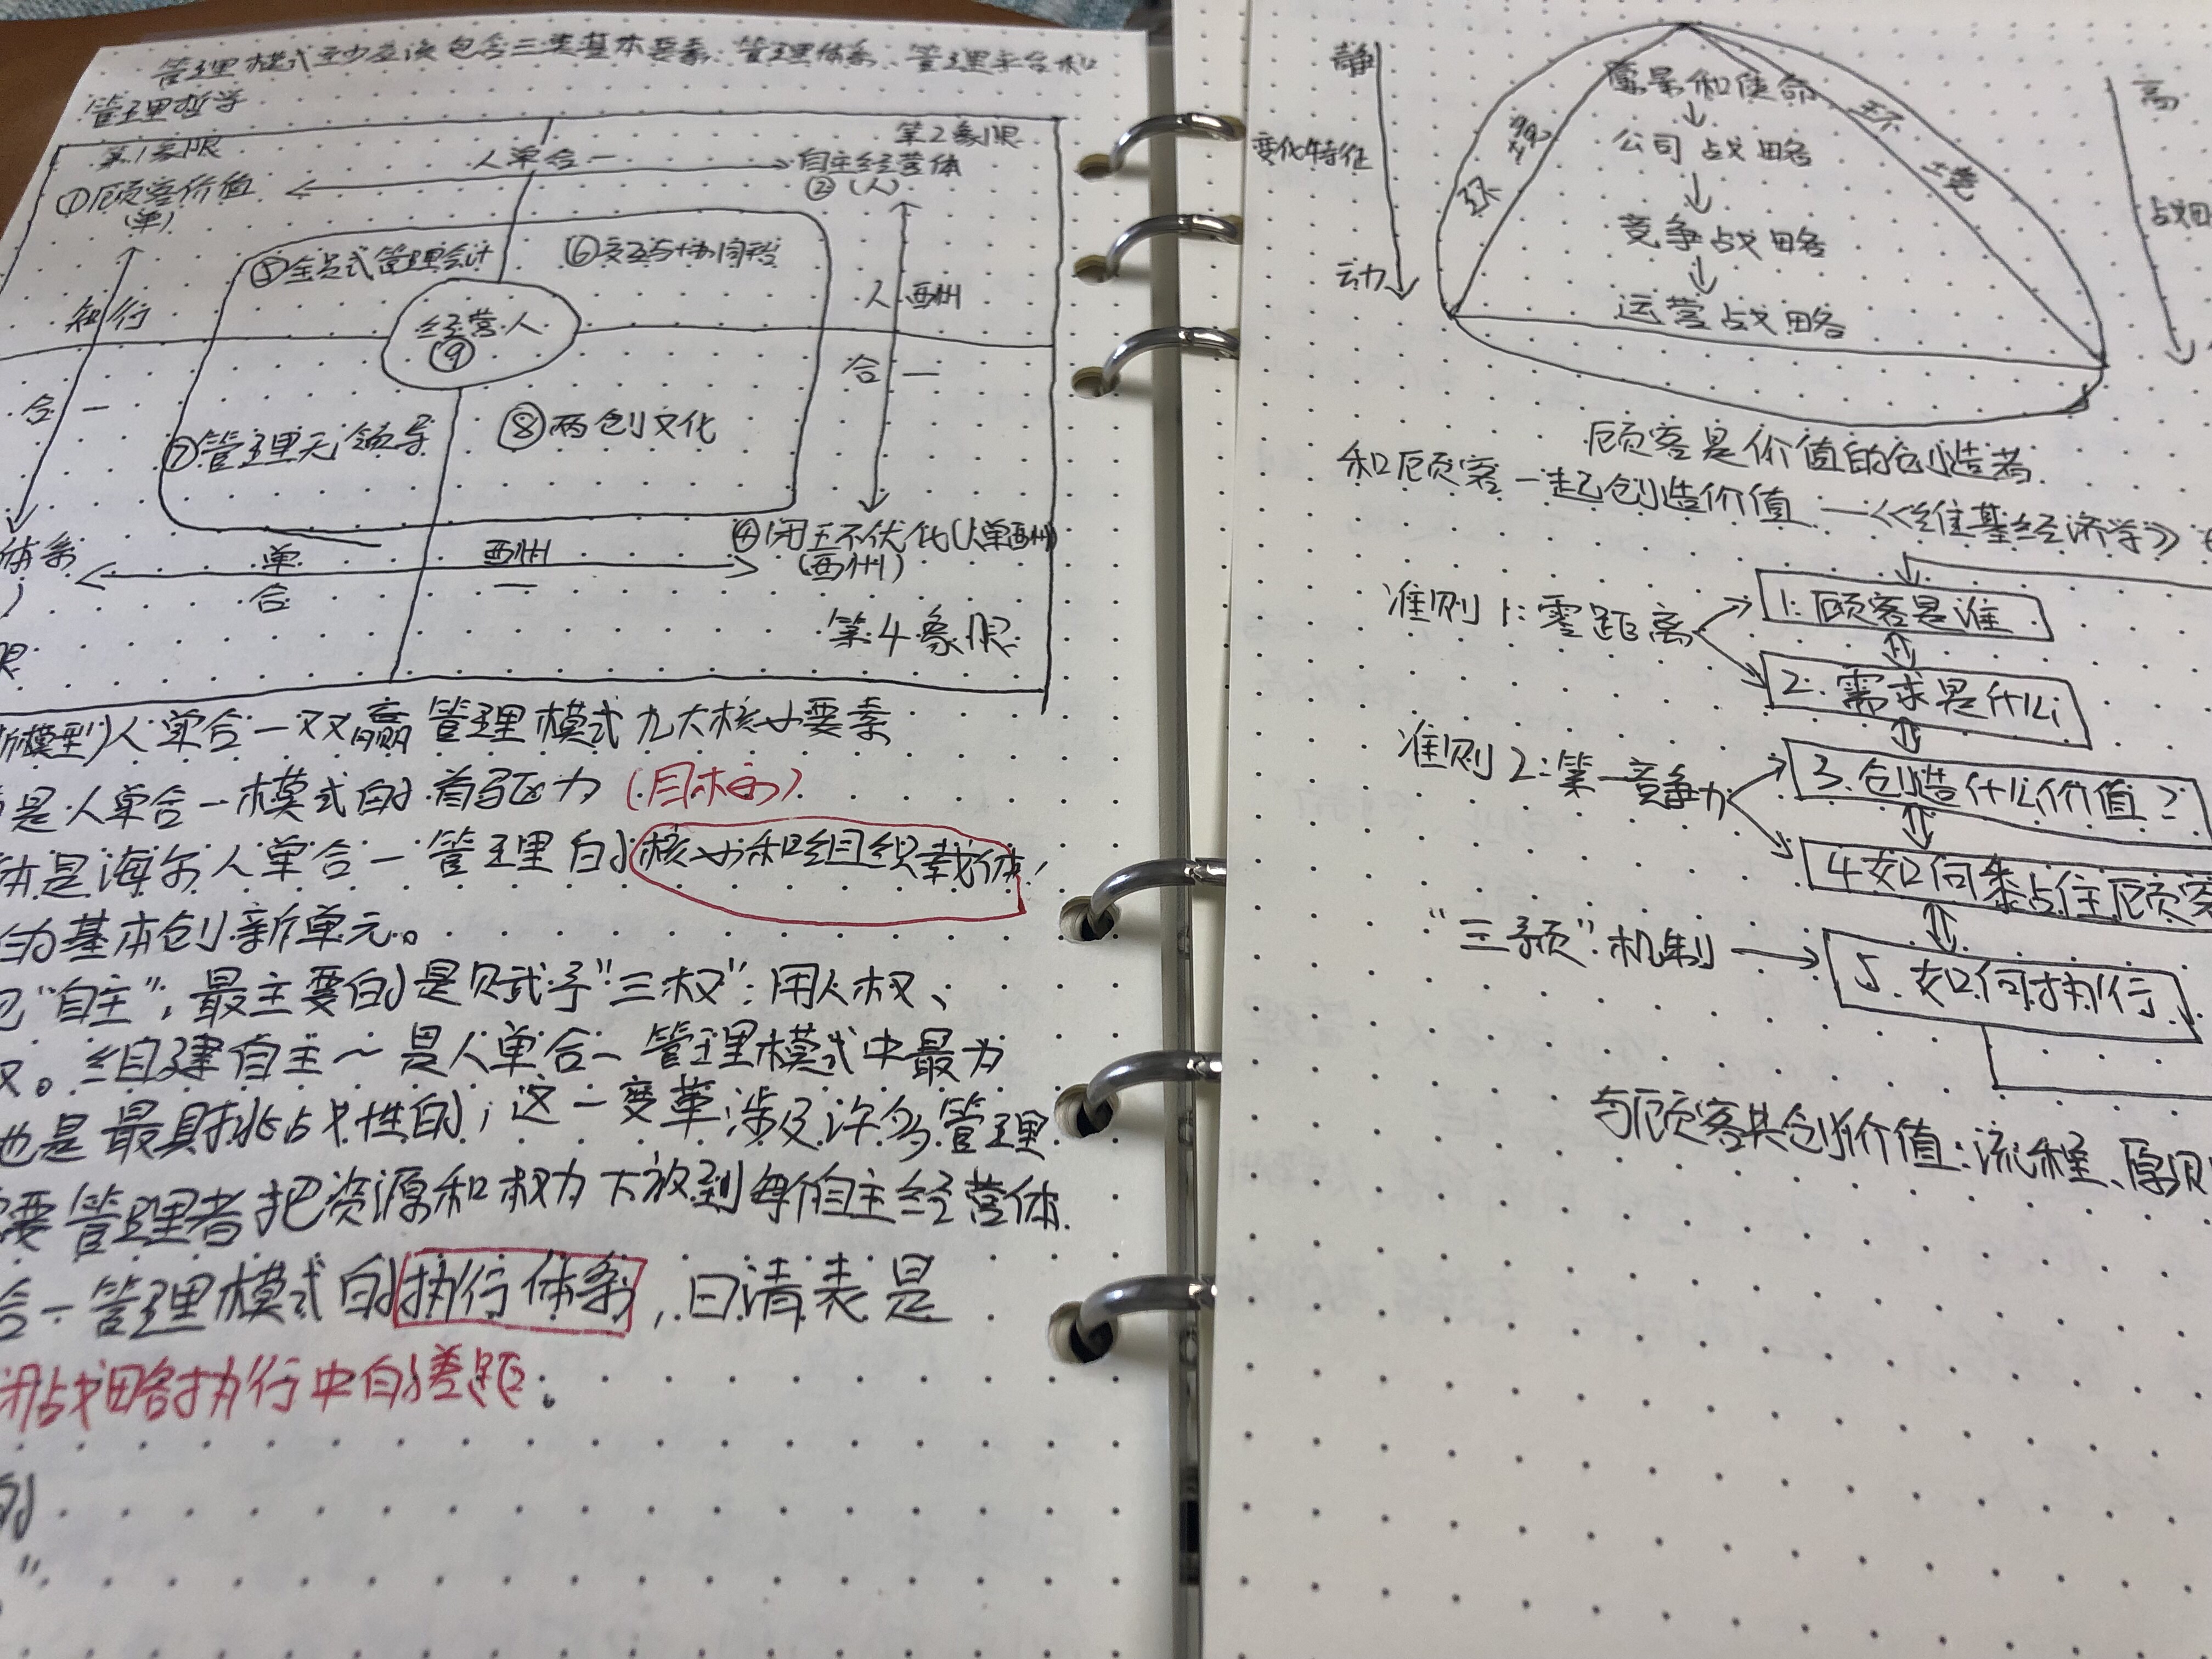 管理模式至少应该包含三类基本要素:管理体系、管理平台和
管理哲学
第1象限
人单合一
第2象限
①顾客价值
(单)
自主经营体
②(人)
⑤全员式管理会计
⑥交互与协同
知行
合一
人酬
合一
经营人
⑨
⑦管理无领导
⑧两创文化
体系
单酬
合一
④闭环优化(人单酬)
(酬)
第4象限
模型)人单合一双赢管理模式九大核心要素
是人单合一模式的首驱力(目标的)
体是海尔人单合一管理的核心和组织载体
的基本创新单元。
"自主",最主要的是赋予"三权":用人权、
权。组建自主~是人单合一管理模式中最为
也是最具挑战性的;这一变革涉及许多管理
要管理者把资源和权力下放到每个自主经营体
合一管理模式的执行体系,日清表是
闭战略执行中的差距。
的
"
静
变化特征
动
愿景和使命
公司战略
竞争战略
运营战略
环
环境
高
战略
顾客是价值的创造者
和顾客一起创造价值—《维基经济学》
准则1:零距离
1:顾客是谁
2:需求是什么
准则2:第一竞争力
3.创造什么价值?
4如何黏住顾客
"三预"机制
5.如何执行
与顾客共创价值:流程、原则